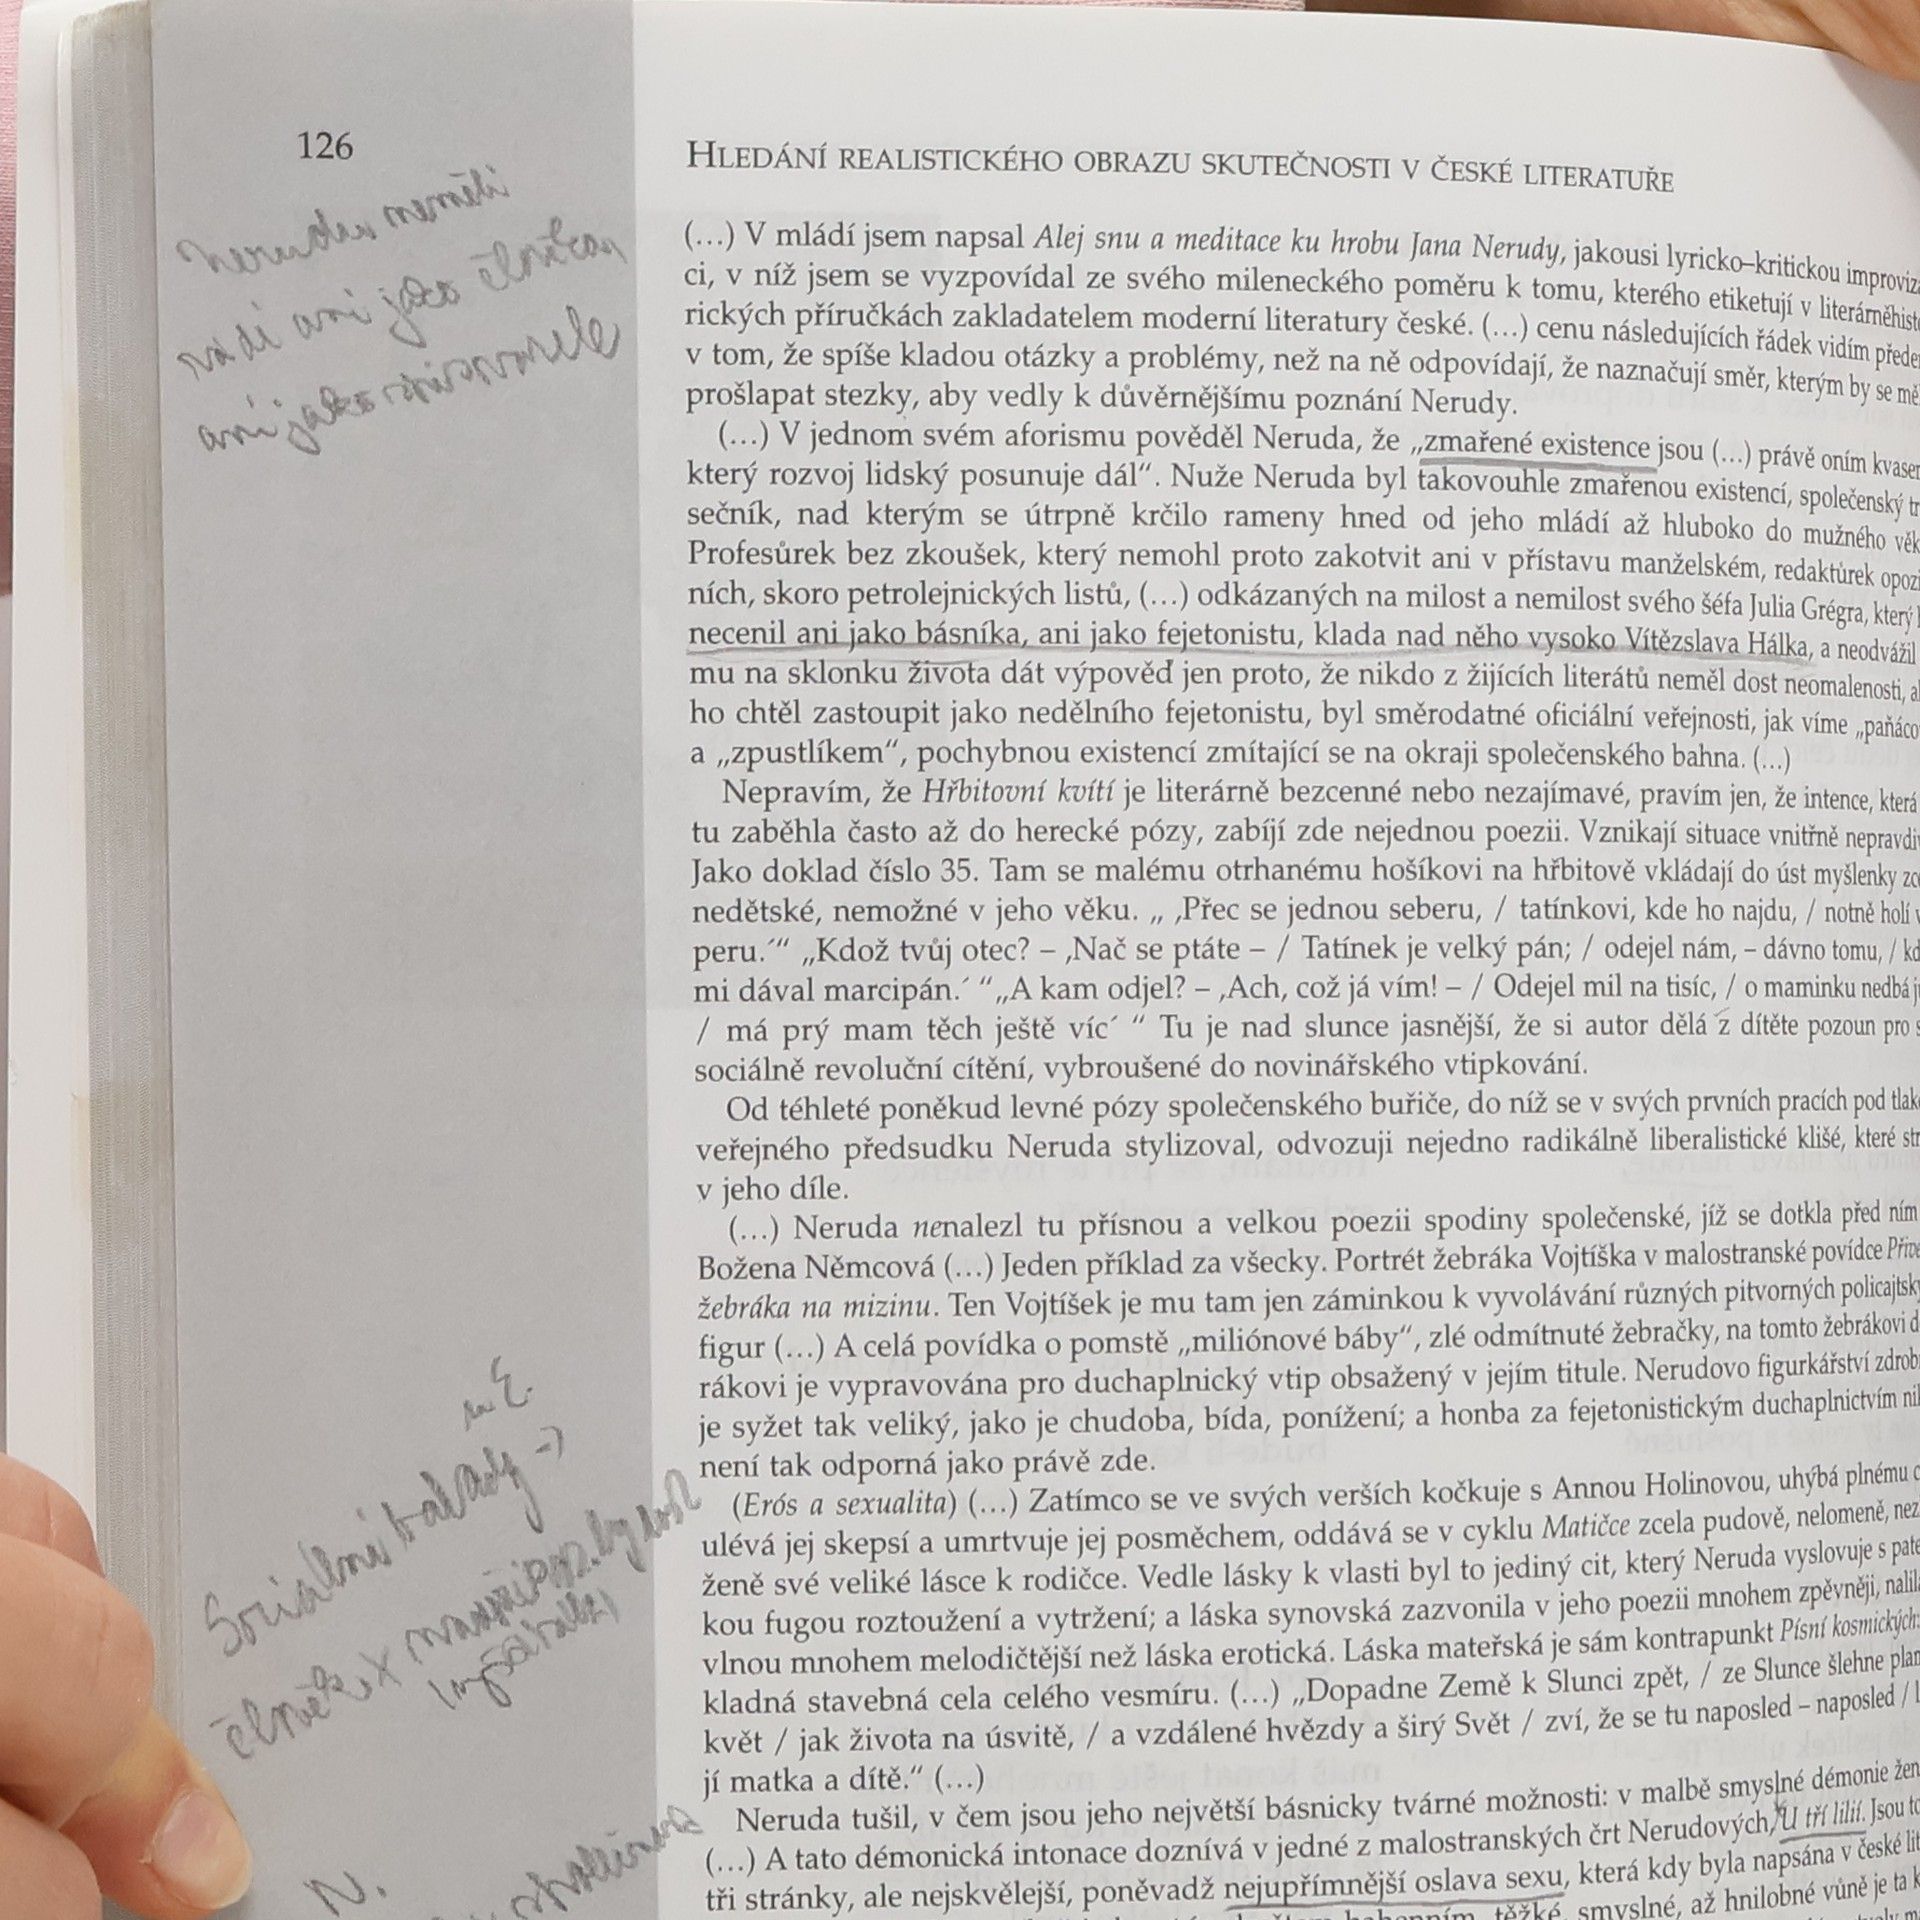 126
HLEDÁNÍ REALISTICKÉHO OBRAZU SKUTEČNOSTI V ČESKÉ LITERATUŘE
Nerudu neměli
rádi ani jako člověka
ani jako spisovatele
(…) V mládí jsem napsal Alej snu a meditace ku hrobu Jana Nerudy, jakousi lyricko–kritickou
ci, v níž jsem se vyzpovídal ze svého mileneckého poměru k tomu, kterého etiketují v
rických příručkách zakladatelem moderní literatury české. (…) cenu následujících řádek vidím
v tom, že spíše kladou otázky a problémy, než na ně odpovídají, že naznačují směr, kterým by se
prošlapat stezky, aby vedly k důvěrnějšímu poznání Nerudy.
(…) V jednom svém aforismu pověděl Neruda, že „zmařené existence jsou (…) právě oním
který rozvoj lidský posunuje dál“. Nuže Neruda byl takovouhle zmařenou existencí, společenský
sečník, nad kterým se útrpně krčilo rameny hned od jeho mládí až hluboko do mužného
Profesůrek bez zkoušek, který nemohl proto zakotvit ani v přístavu manželském, redaktůrek
ních, skoro petrolejnických listů, (…) odkázaných na milost a nemilost svého šéfa Julia Grégra, který
necenil ani jako básníka, ani jako fejetonistu, klada nad něho vysoko Vítězslava Hálka, a neodvážil
mu na sklonku života dát výpověď jen proto, že nikdo z žijících literátů neměl dost neomalenosti,
ho chtěl zastoupit jako nedělního fejetonistu, byl směrodatné oficiální veřejnosti, jak víme
a „zpustlíkem“, pochybnou existencí zmítající se na okraji společenského bahna. (…)
Nepravím, že Hřbitovní kvítí je literárně bezcenné nebo nezajímavé, pravím jen, že intence, která
tu zaběhla často až do herecké pózy, zabíjí zde nejednou poezii. Vznikají situace vnitřně
Jako doklad číslo 35. Tam se malému otrhanému hošíkovi na hřbitově vkládají do úst myšlenky
nedětské, nemožné v jeho věku. „ ‚Přec se jednou seberu, / tatínkovi, kde ho najdu, / notně holí
peru.´“ „Kdož tvůj otec? – ‚Nač se ptáte – / Tatínek je velký pán; / odejel nám, – dávno tomu, /
mi dával marcipán.´ “„A kam odjel? – ‚Ach, což já vím! – / Odejel mil na tisíc, / o maminku nedbá
/ má prý mam těch ještě víc´ “ Tu je nad slunce jasnější, že si autor dělá z dítěte pozoun pro
sociálně revoluční cítění, vybroušené do novinářského vtipkování.
Od téhleté poněkud levné pózy společenského buřiče, do níž se v svých prvních pracích pod
veřejného předsudku Neruda stylizoval, odvozuji nejedno radikálně liberalistické klišé, které
v jeho díle.
(…) Neruda nenalezl tu přísnou a velkou poezii spodiny společenské, jíž se dotkla před ním
Božena Němcová (…) Jeden příklad za všecky. Portrét žebráka Vojtíška v malostranské povídce
žebráka na mizinu. Ten Vojtíšek je mu tam jen záminkou k vyvolávání různých pitvorných
figur (…) A celá povídka o pomstě „miliónové báby“, zlé odmítnuté žebračky, na tomto žebrákovi
rákovi je vypravována pro duchaplnický vtip obsažený v jejím titule. Nerudovo figurkářství
je syžet tak veliký, jako je chudoba, bída, ponížení; a honba za fejetonistickým duchaplnictvím
není tak odporná jako právě zde.
Sociální balady →
(Erós a sexualita) (…) Zatímco se ve svých verších kočkuje s Annou Holinovou, uhýbá plnému
ulévá jej skepsí a umrtvuje jej posměchem, oddává se v cyklu Matičce zcela pudově, nelomeně,
ženě své veliké lásce k rodičce. Vedle lásky k vlasti byl to jediný cit, který Neruda vyslovuje s
kou fugou roztoužení a vytržení; a láska synovská zazvonila v jeho poezii mnohem zpěvněji,
vlnou mnohem melodičtější než láska erotická. Láska mateřská je sám kontrapunkt Písní kosmických:
kladná stavebná cela celého vesmíru. (…) „Dopadne Země k Slunci zpět, / ze Slunce šlehne
květ / jak života na úsvitě, / a vzdálené hvězdy a širý Svět / zví, že se tu naposled – naposled /
jí matka a dítě.“ (…)
N.
Neruda tušil, v čem jsou jeho největší básnicky tvárné možnosti: v malbě smyslné démonie
(…) A tato démonická intonace doznívá v jedné z malostranských črt Nerudových, U tří lilií. Jsou
tři stránky, ale nejskvělejší, poněvadž nejupřímnější oslava sexu, která kdy byla napsána v české
těžké, smyslné, až hnilobné vůně je ta